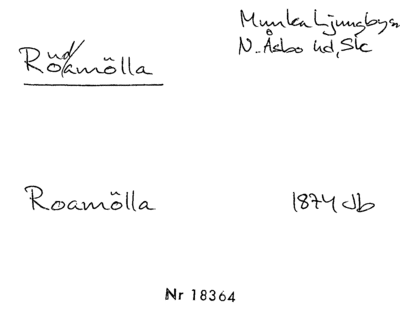 Munka Ljungby sn
N. Åsbo hd, Sk
Rödamölla
Roamölla 1874 Jb
Nr 18364